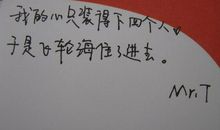 我的心只装得下四个人
于是飞轮海住了进去。
Mr.T